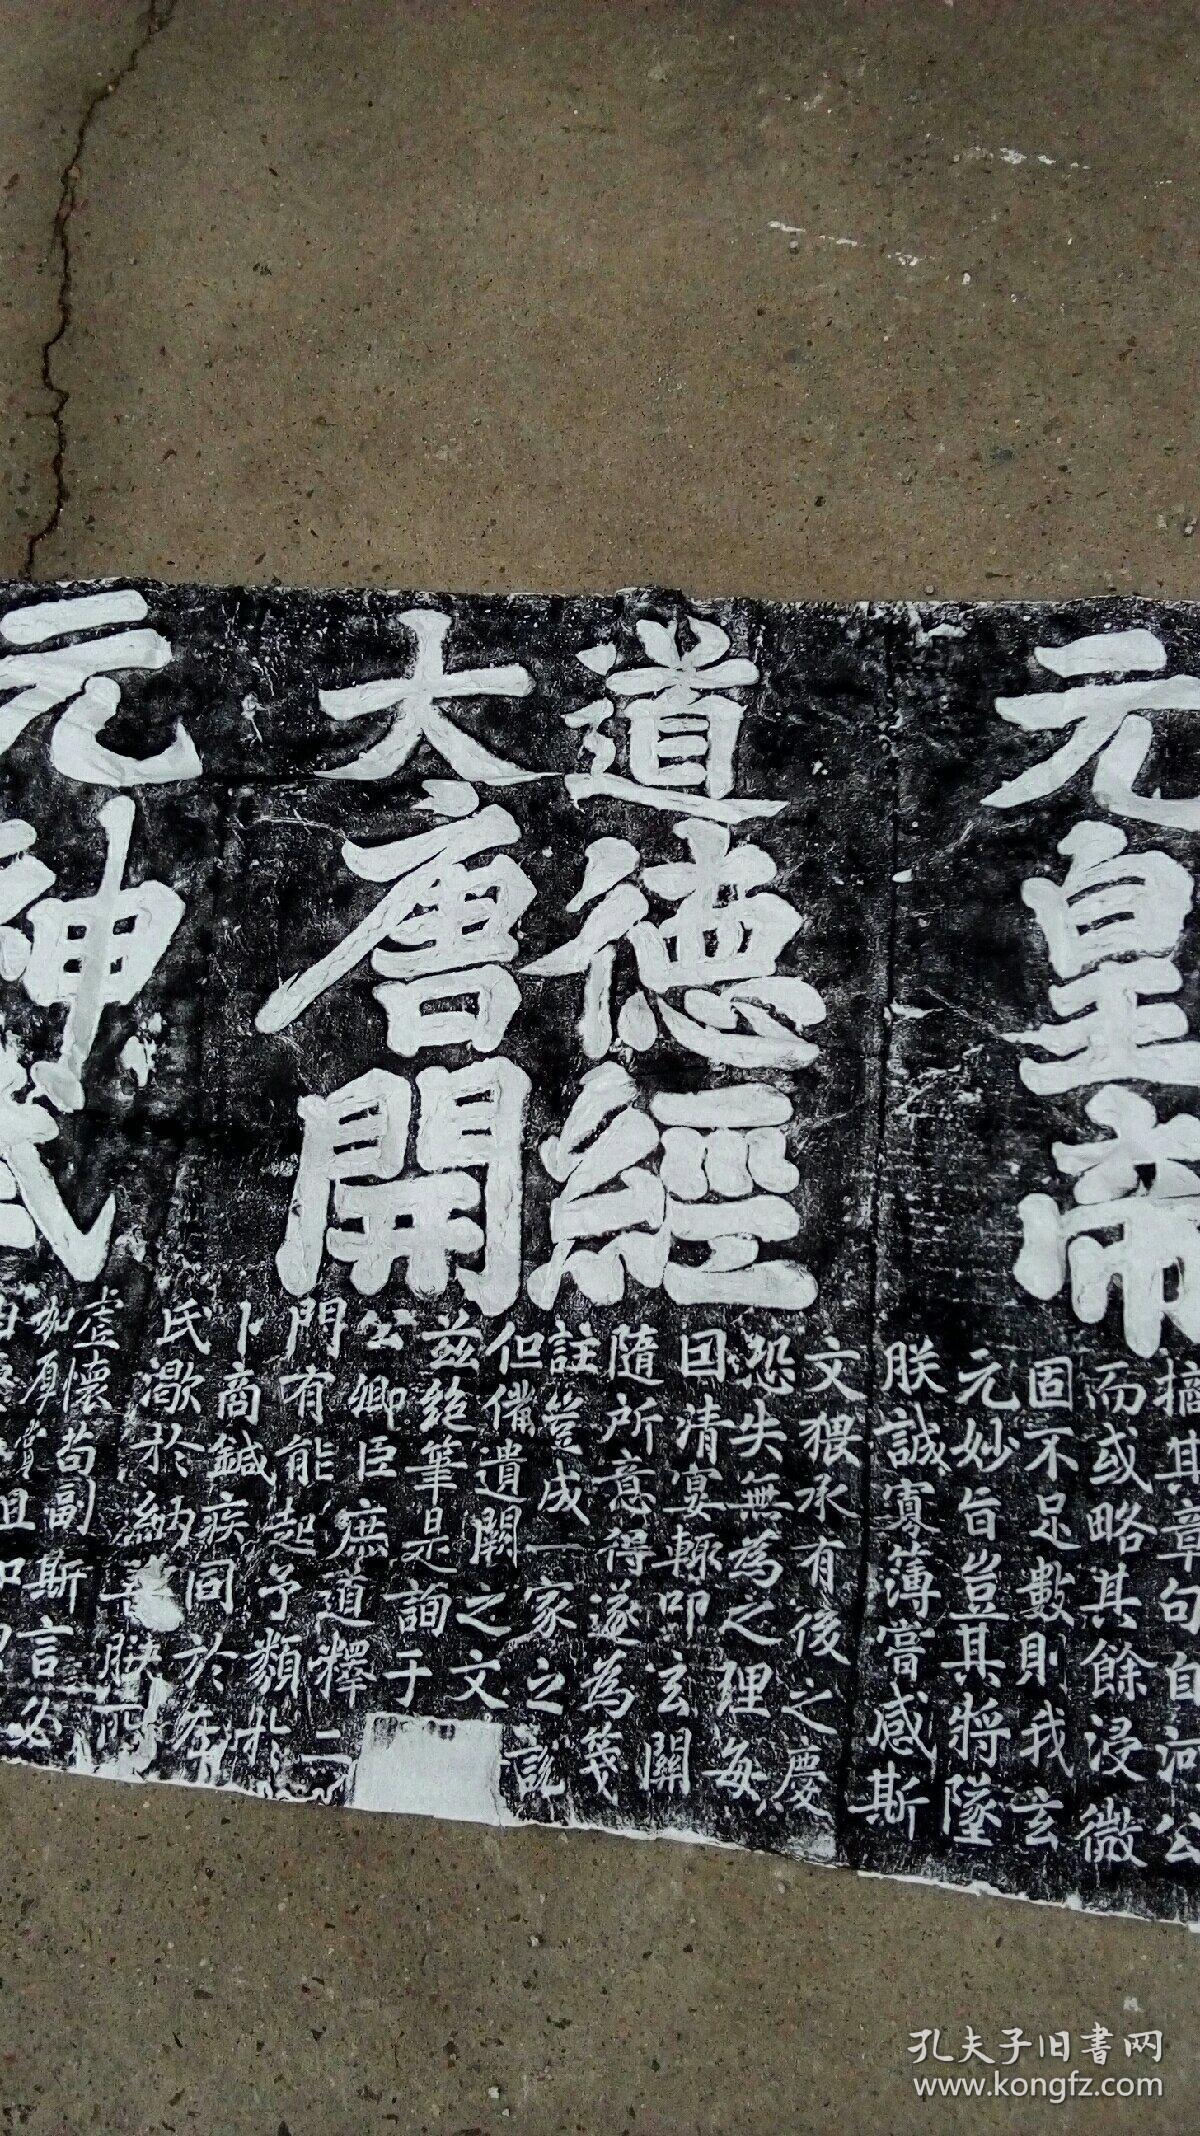 元皇帝
道德經
大唐開
元神武
摛其章句自河公
而或略其餘浸微
固不足數則我玄
元妙旨豈其將墜
朕誠寡薄嘗感斯
文猥承有後之慶
恐失無為之理每
因清宴輒叩玄關
隨所意得遂為箋
註豈成一家之說
但備遺闕之文
茲絕筆是詢于
公卿臣庶道釋二
門有能起予類
卜商鍼疾同於左
氏渴於納善朕所
虛懷苟副斯言必
加厚賞且
孔夫子旧書网
www.kongfz.com